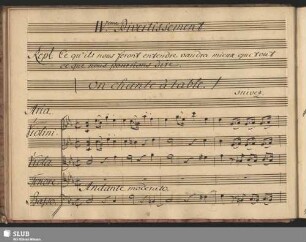 IV.eme Divertissement
Repl. Ce qu'ils nous feront entendre vaudra mieux que tout
ce que nous pourrions dire.
On chante à table.
Suives.
Aria
Violini
Viola
Tenore
Andante moderato.
Basso
SLUB